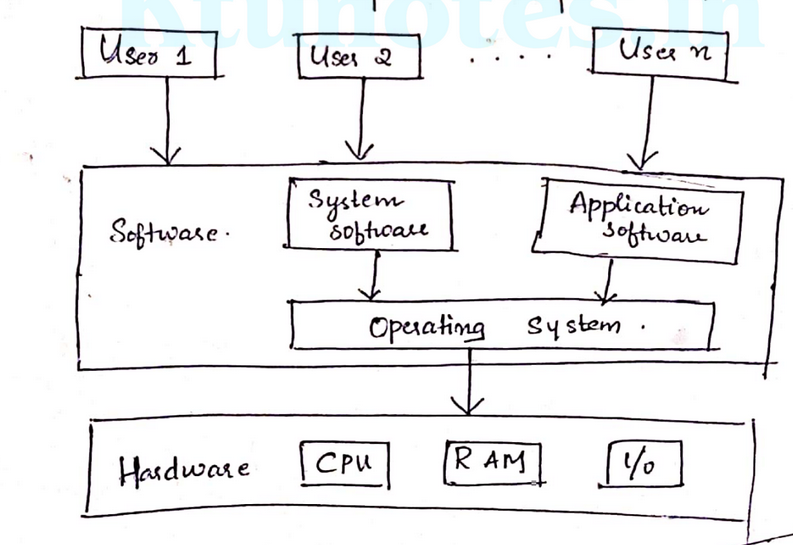 Ktunotes.in
User 1
User 2
. . . . .
User n
Software.
System
software
Application
software
Operating System.
Hardware
CPU
RAM
I/O